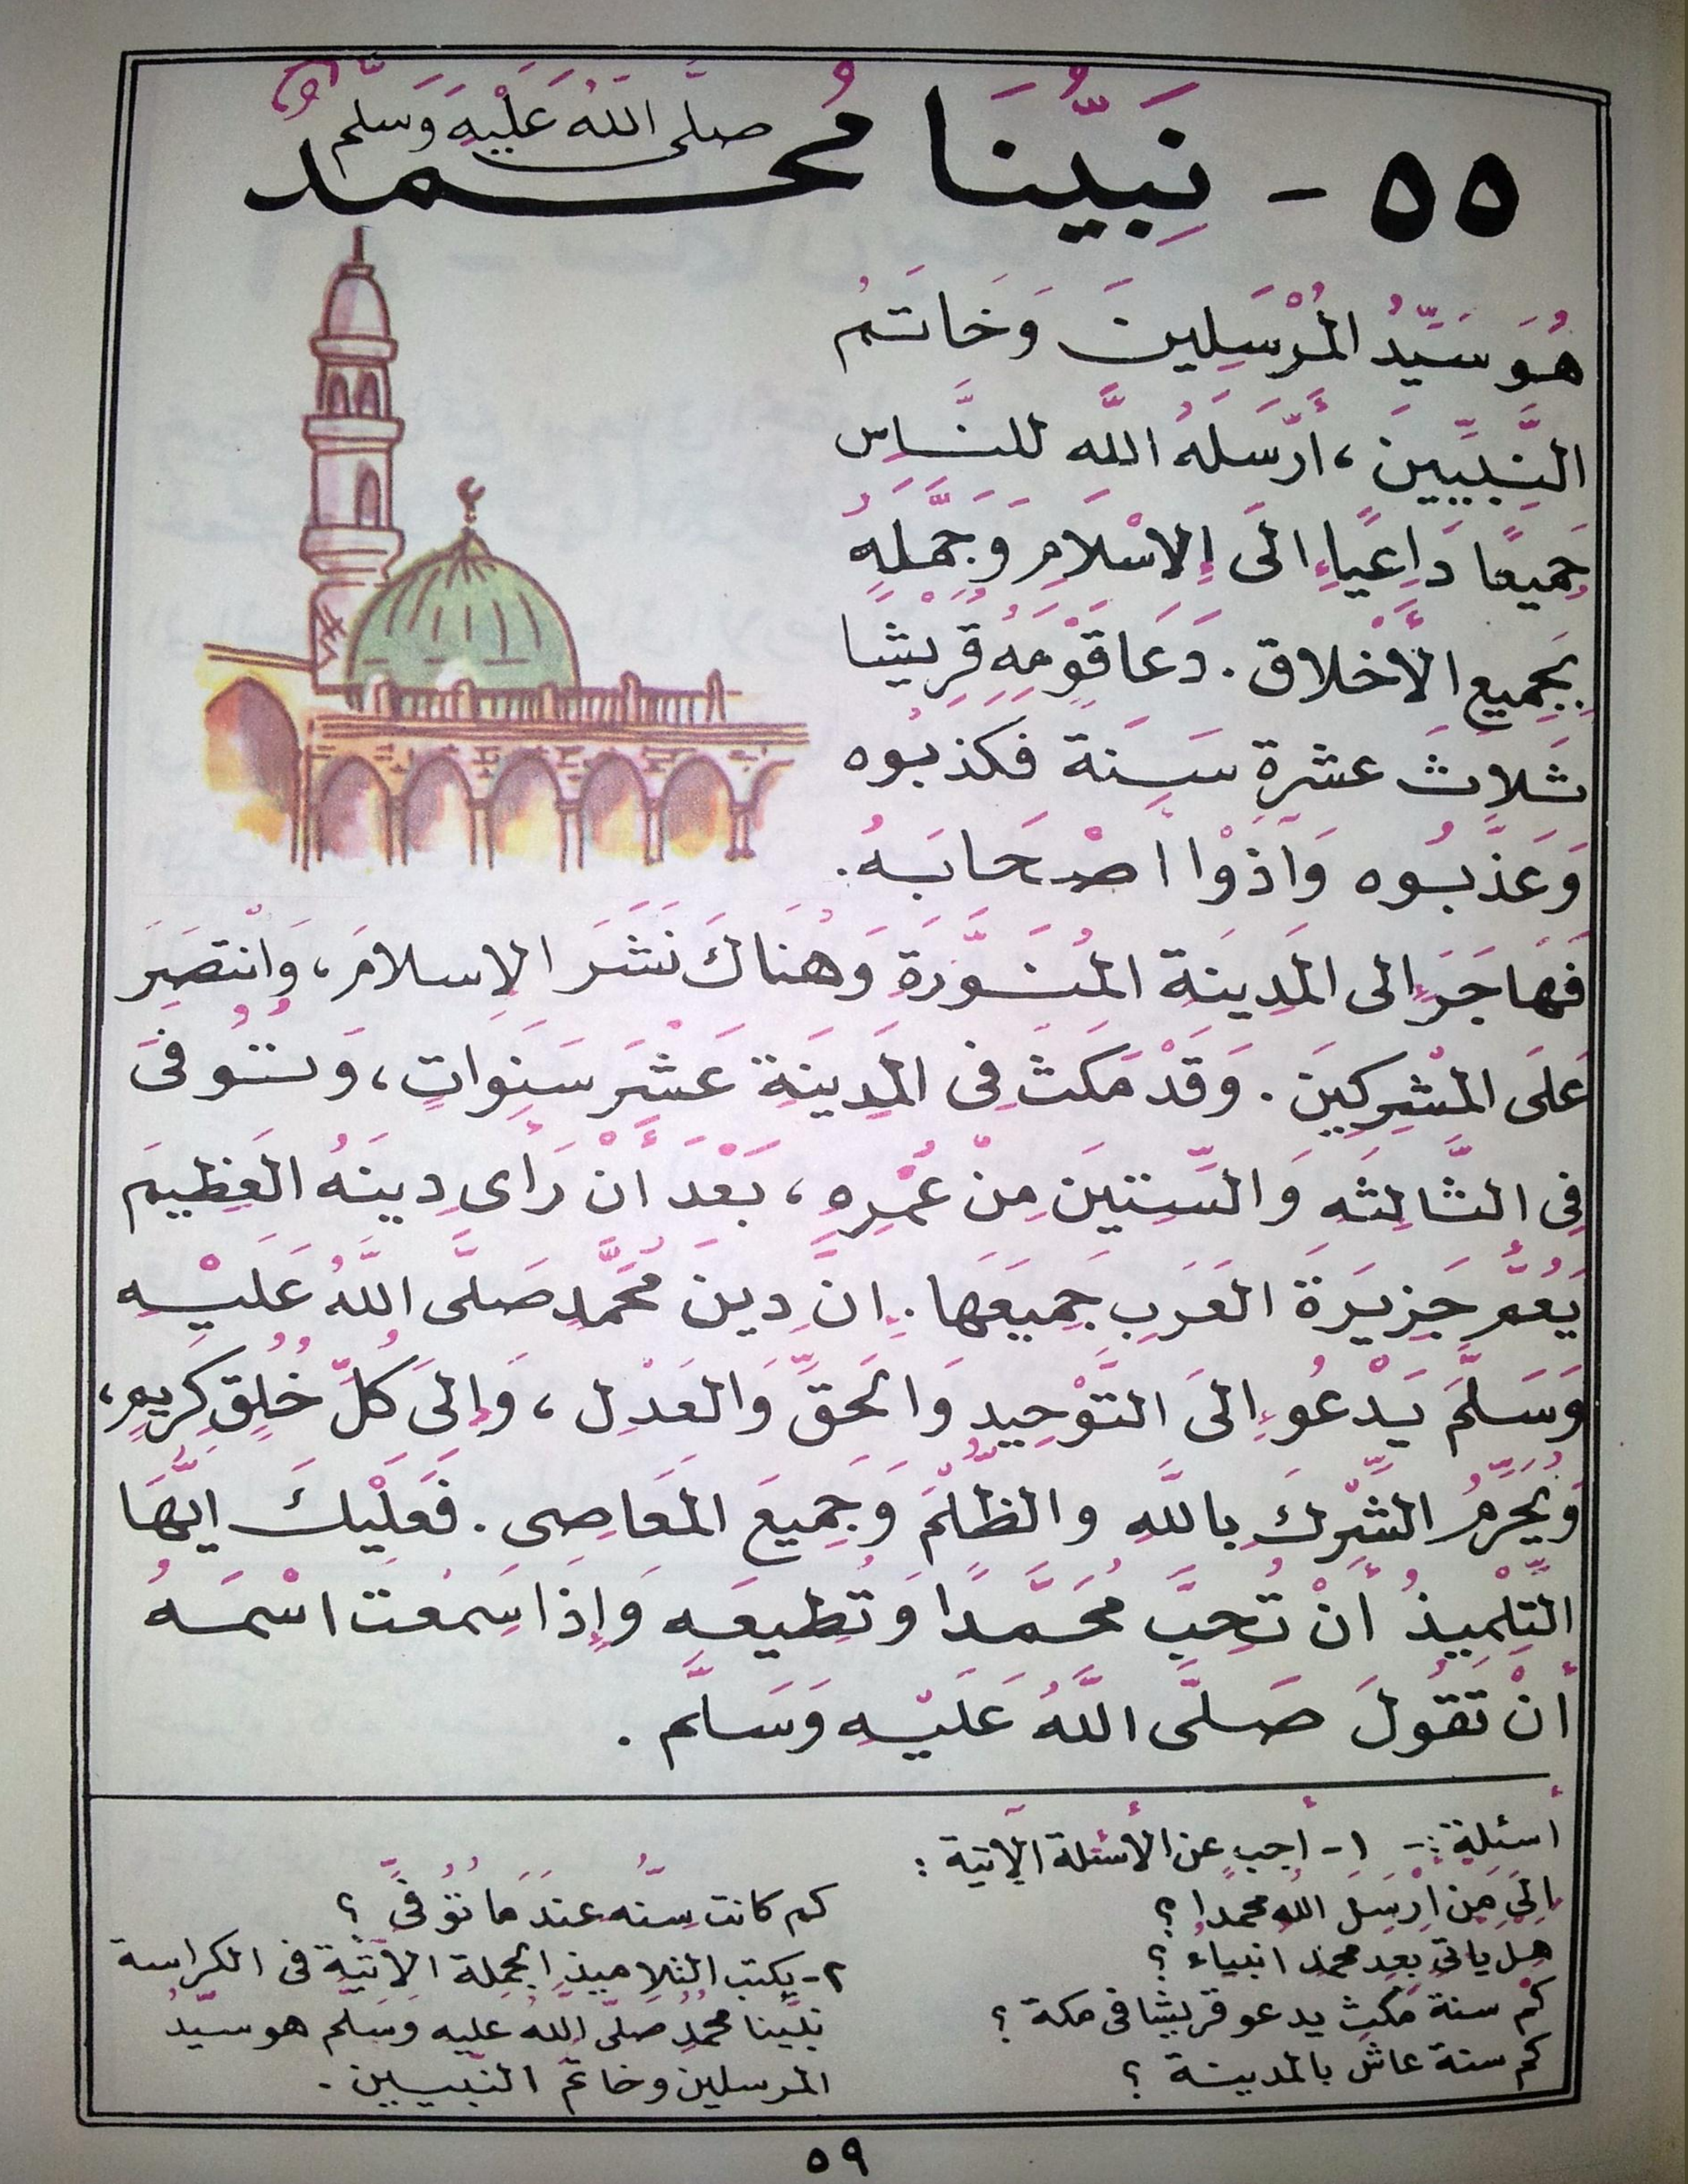 ٥٥ - نَبِيُّنَا مُحَمَّدٌ صَلَّى اللَّهُ عَلَيْهِ وَسَلَّم
هُوَ سَيِّدُ المُرْسَلِينَ وَخَاتَمُ
النَّبِيِّينَ ، أَرْسَلَهُ اللَّه للنَّاسِ
جَمِيعًا دَاعِيًا إِلَى الإِسْلاَمِ وَجَمَّلَهُ
بِجَمِيعِ الأَخْلاق . دَعَا قَوْمَهُ قُرَيْشًا
ثَلاثَ عشرةِ سَنَة فكذبُوه
وَعَذَّبُوه وَآذَوْا اصْحَابَهُ .
فَهَاجَرَ إلى المَدِينَةِ المُنَوَّرَةِ وَهُنَاكَ نَشَرَ الإِسلامَ ، وَانْتَصَرَ
عَلَى المُشْرِكِينَ . وَقَدْ مَكَثَ فِى المَدِينَةِ عَشْرَ سَنَوَاتٍ ، وَتُوُفىَ
فِى الثَّالِثَهِ وَالسِّتينَ مِنْ عُمْرِهِ ، بَعْدَ أَنْ رَأَى دِينَهُ العَظِيمَ
يَعُمُّ جَزِيرَةَ العَرَبِ جَمِيعَهَا . إِنَّ دِينَ مُحَمَّدٍ صَلَّى اللَّهُ عَلَيْهِ
وَسَلَّمَ يَدْعُو إِلىَ التَّوْحِيدِ وَالحَقِّ وَالعَدْلِ ، وَإِلىَ كُلِّ خُلُقٍ كَرِيمٍ ،
وَيُحَرِّمُ الشِّرْكَ بِاللَّهِ والظُّلْمَ وَجَمِيعَ المَعَاصِى . فَعَلَيْكَ ايُّهَا
التِّلْمِيذُ أَنْ تُحِبَّ مُحَمَّدًا وَتُطِيعَهِ وَإِذَا سَمِعْتَ اسْمَهُ
أَنْ تَقُولَ صَلَّى اللَّهُ عَلَيْهِ وَسَلَّم .
أسئلة :- ١ - أجب عن الأسئلة الآتية :
إلىَ مَن أَرْسَلَ اللهُ محمدًا ؟
هل يأتى بعد محمد انبياء ؟
كَمْ سنة مَكث يدعو قريشًا فى مكة ؟
كم سنة عاش بالمدينة ؟
كم كانت سِنُّه عندَ مَا تُوُفىِّ ؟
٢ - يكتب التلاميذ الجملة الآتية فى الكراسة
نبيّنا محمدٌ صَلَّى اللهُ عليه وسَلم هو سيّدُ
المرسلين وخاتم النّبيين .
٥٩